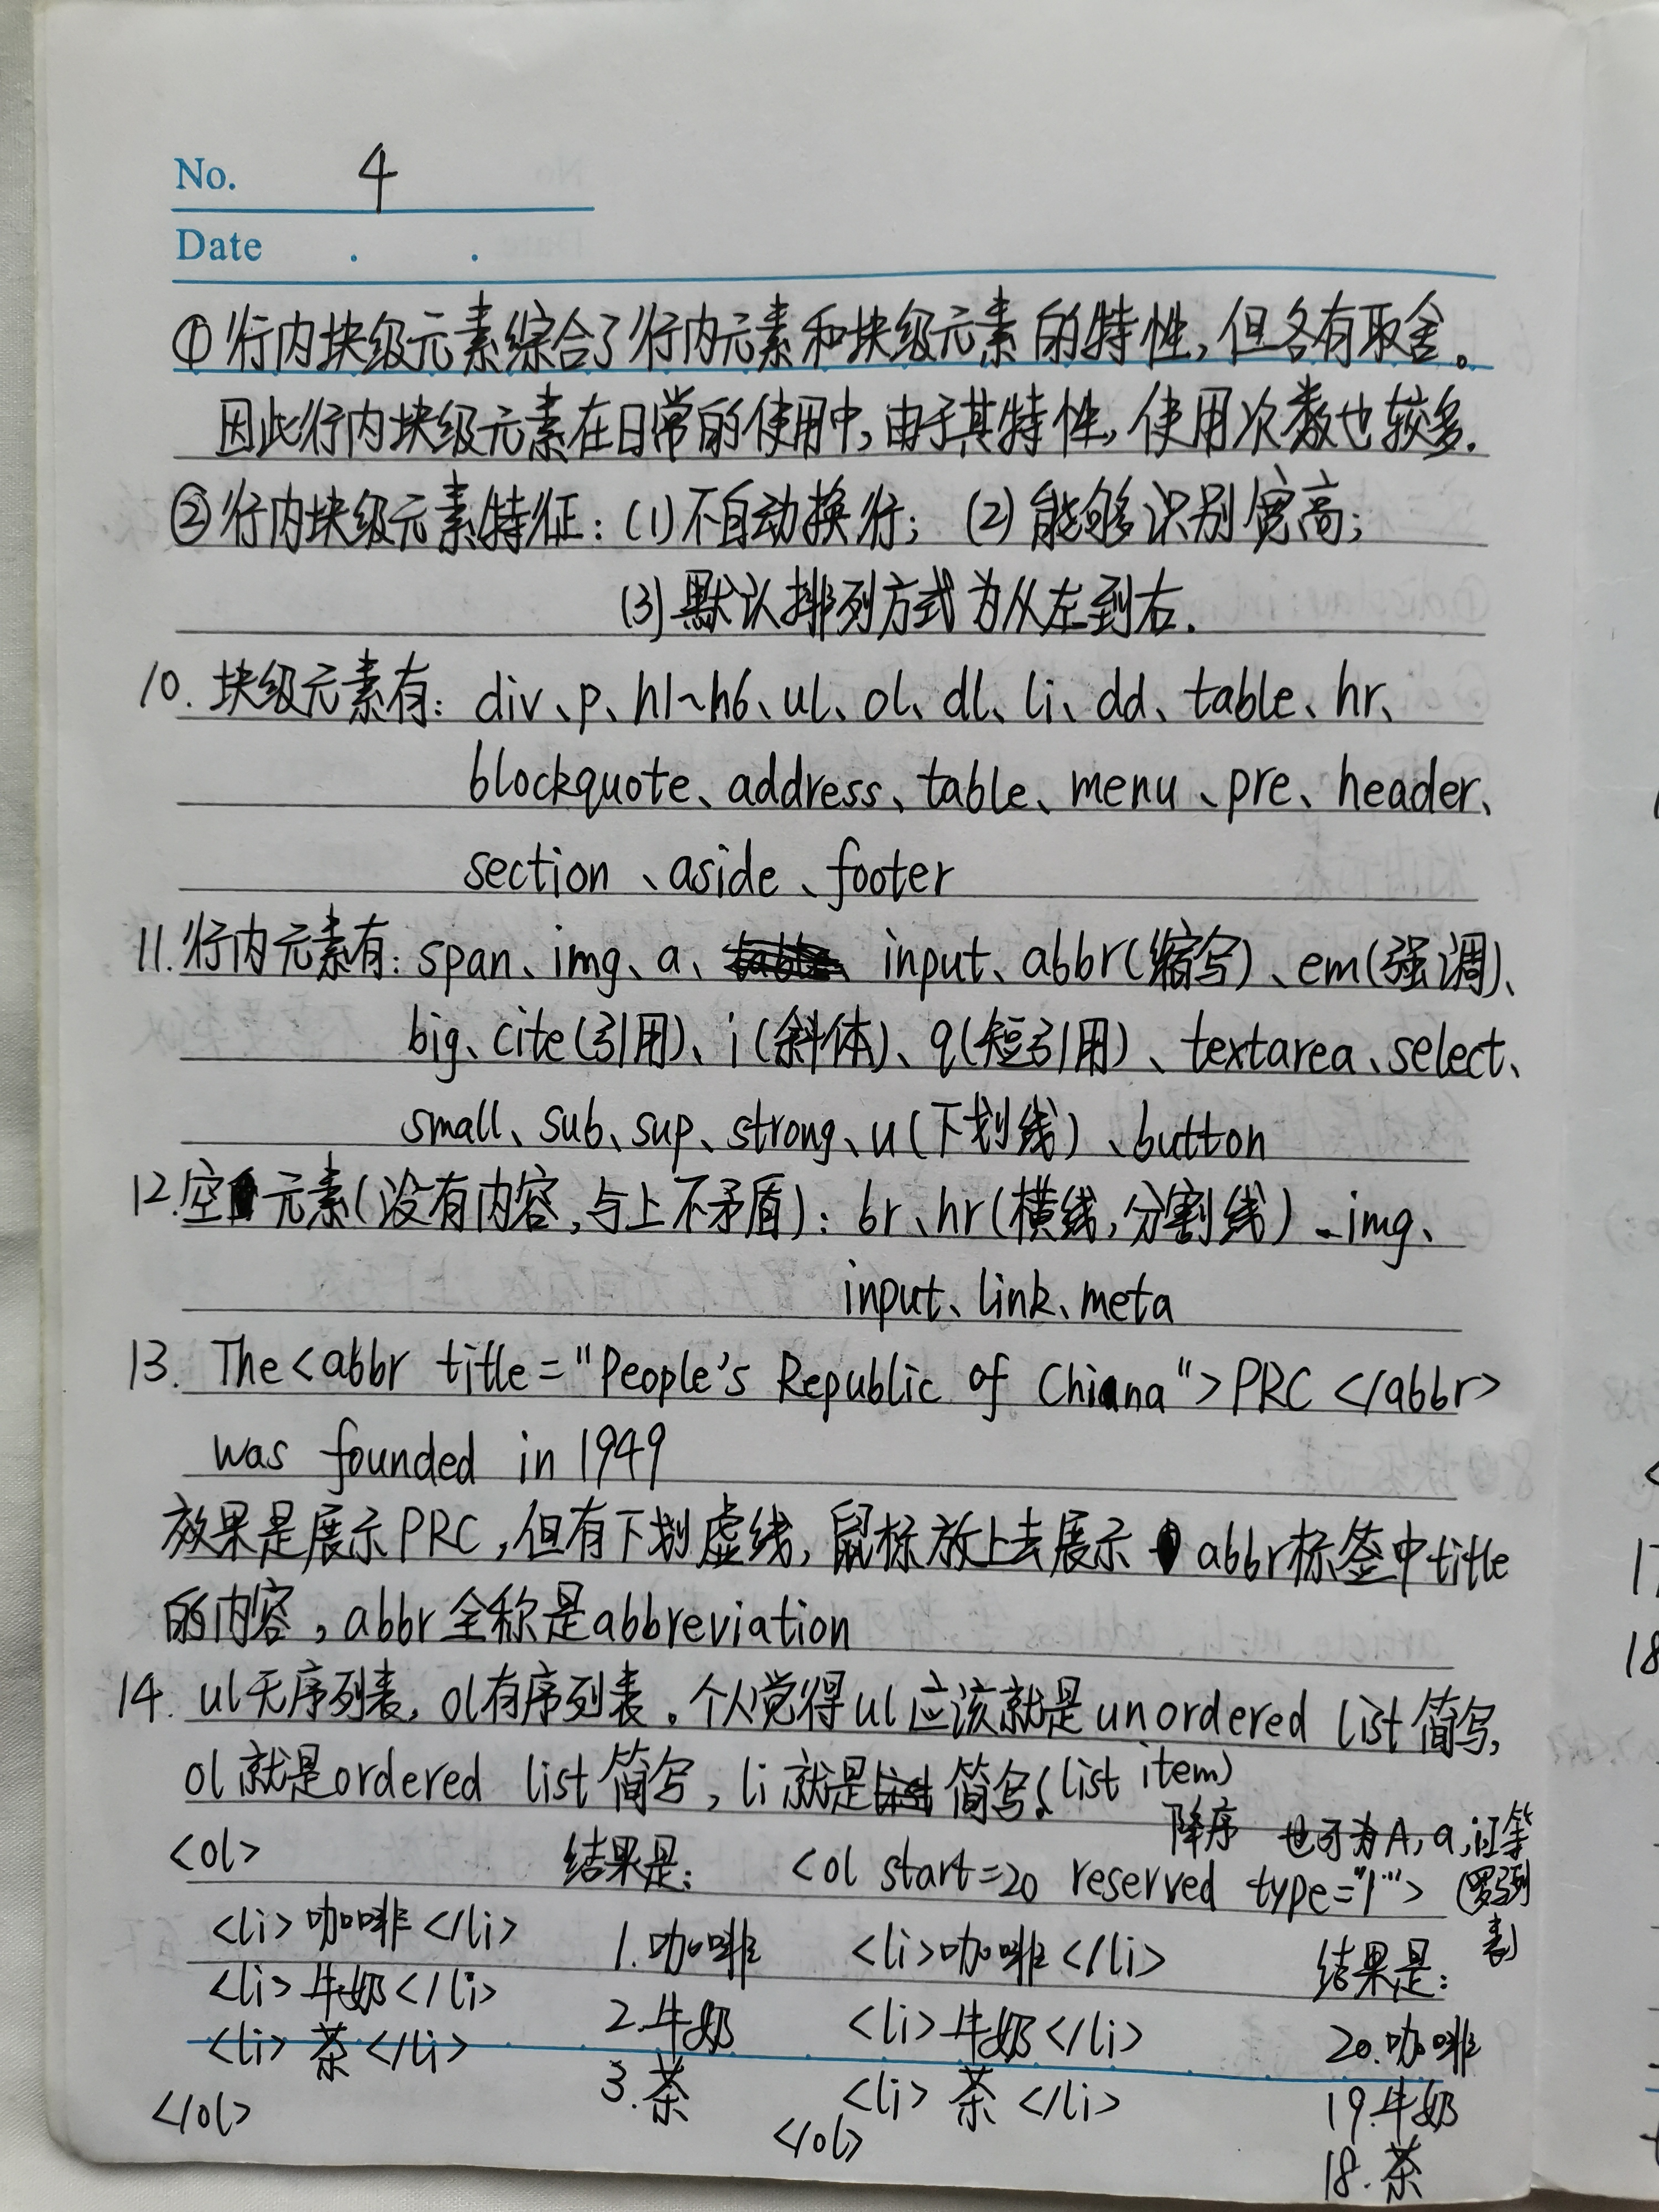 No. 4
Date . .
①行内块级元素综合了行内元素和块级元素的特性,但各有取舍。
因此行内块级元素在日常的使用中,由于其特性,使用次数也较多.
②行内块级元素特征:(1)不自动换行; (2)能够识别宽高;
(3)默认排列方式为从左到右.
10. 块级元素有: div、p、h1~h6、ul、ol、dl、li、dd、table、hr、
blockquote、address、table、menu、pre、header、
section、aside、footer
11.行内元素有: span、img、a、 input、abbr(缩写)、em(强调)、
big、cite(引用)、i(斜体)、q(短引用)、textarea、select、
small、sub、sup、strong、u(下划线)、button
12.空元素(没有内容,与上不矛盾): br、hr(横线,分割线)、img、
input、link、meta
13. The<abbr title="People's Republic of China">PRC </abbr>
was founded in 1949
效果是展示PRC,但有下划虚线,鼠标放上去展示 abbr标签中title
的内容,abbr全称是abbreviation
14. ul无序列表, ol有序列表。个人觉得ul应该就是unordered list简写,
ol就是ordered list简写, li就是 简写(list item)
<ol>
<li>咖啡</li>
<li>牛奶</li>
<li>茶</li>
</ol>
结果是:
1.咖啡
2.牛奶
3.茶
降序 也可为A,a,i,I等
<ol start=20 reserved type="1"> (罗列表)
<li>咖啡</li>
<li>牛奶</li>
<li>茶</li>
</ol>
结果是:
20.咖啡
19.牛奶
18.茶
17
18